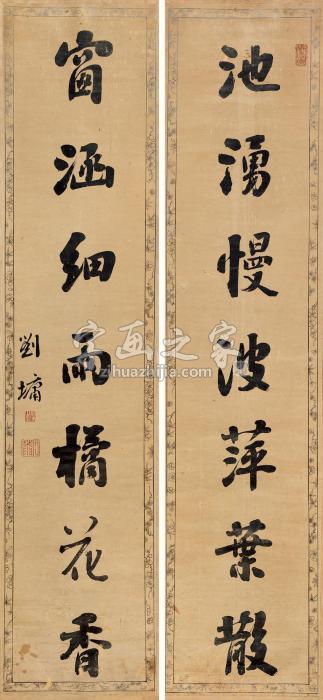 池湧慢波萍葉散
窗涵細雨橘花香
劉墉
字画之家
zihuazhijia.com